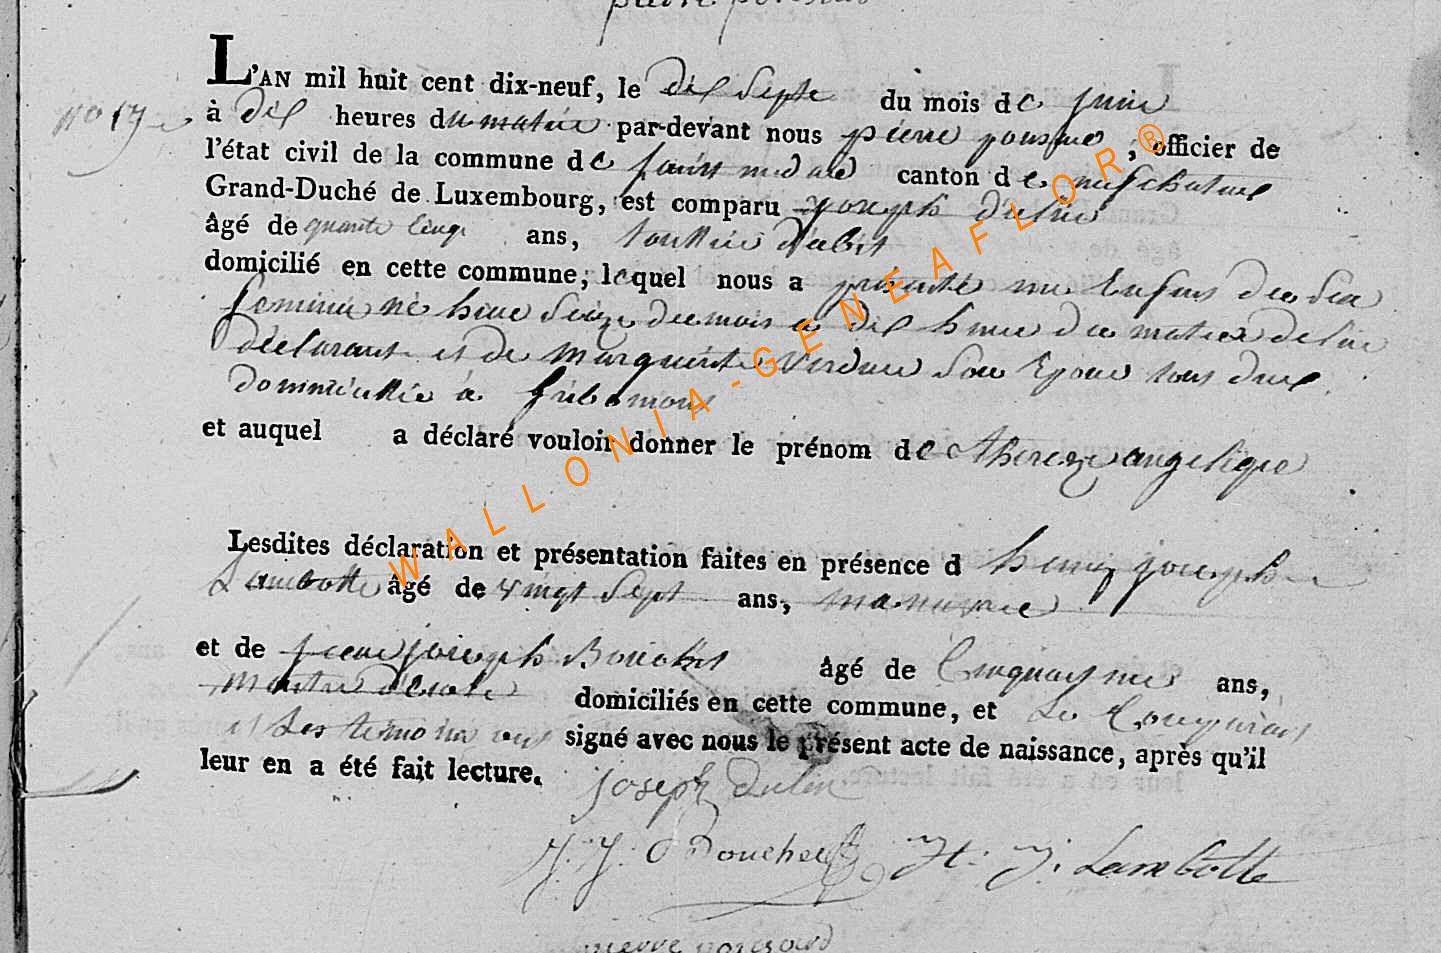 pierre poissard
L'AN mil huit cent dix-neuf, le dix Septe du mois de juin
n° 17
à dix heures du matin par-devant nous pierre , officier de
l'état civil de la commune de saint medard canton de neufchateau
Grand-Duché de Luxembourg, est comparu joseph
âgé de quarante cinq ans, d'abit
domicilié en cette commune, lequel nous a presenté un Enfans du Sex
feminin né hier Seize du mois a dix heure du matin de lui
déclarant et de Margueritte Verdun Son Epouse tous deux
domiciellié a fribomont
et auquel a déclaré vouloir donner le prénom de Thereze angelique
Lesdites déclaration et présentation faites en présence d henry joseph
Lambotte âgé de vingt Sept ans, manuvre
et de joseph Bouchet âgé de Cinquant ans,
maitre d'Ecole domiciliés en cette commune, et Le Comparant
et Les temoins ont signé avec nous le présent acte de naissance, après qu'il
leur en a été fait lecture.
joseph dulin
J. J. Bouchet H. J. Lambotte
pierre poissard
WALLONIA-GENEAFLOR®